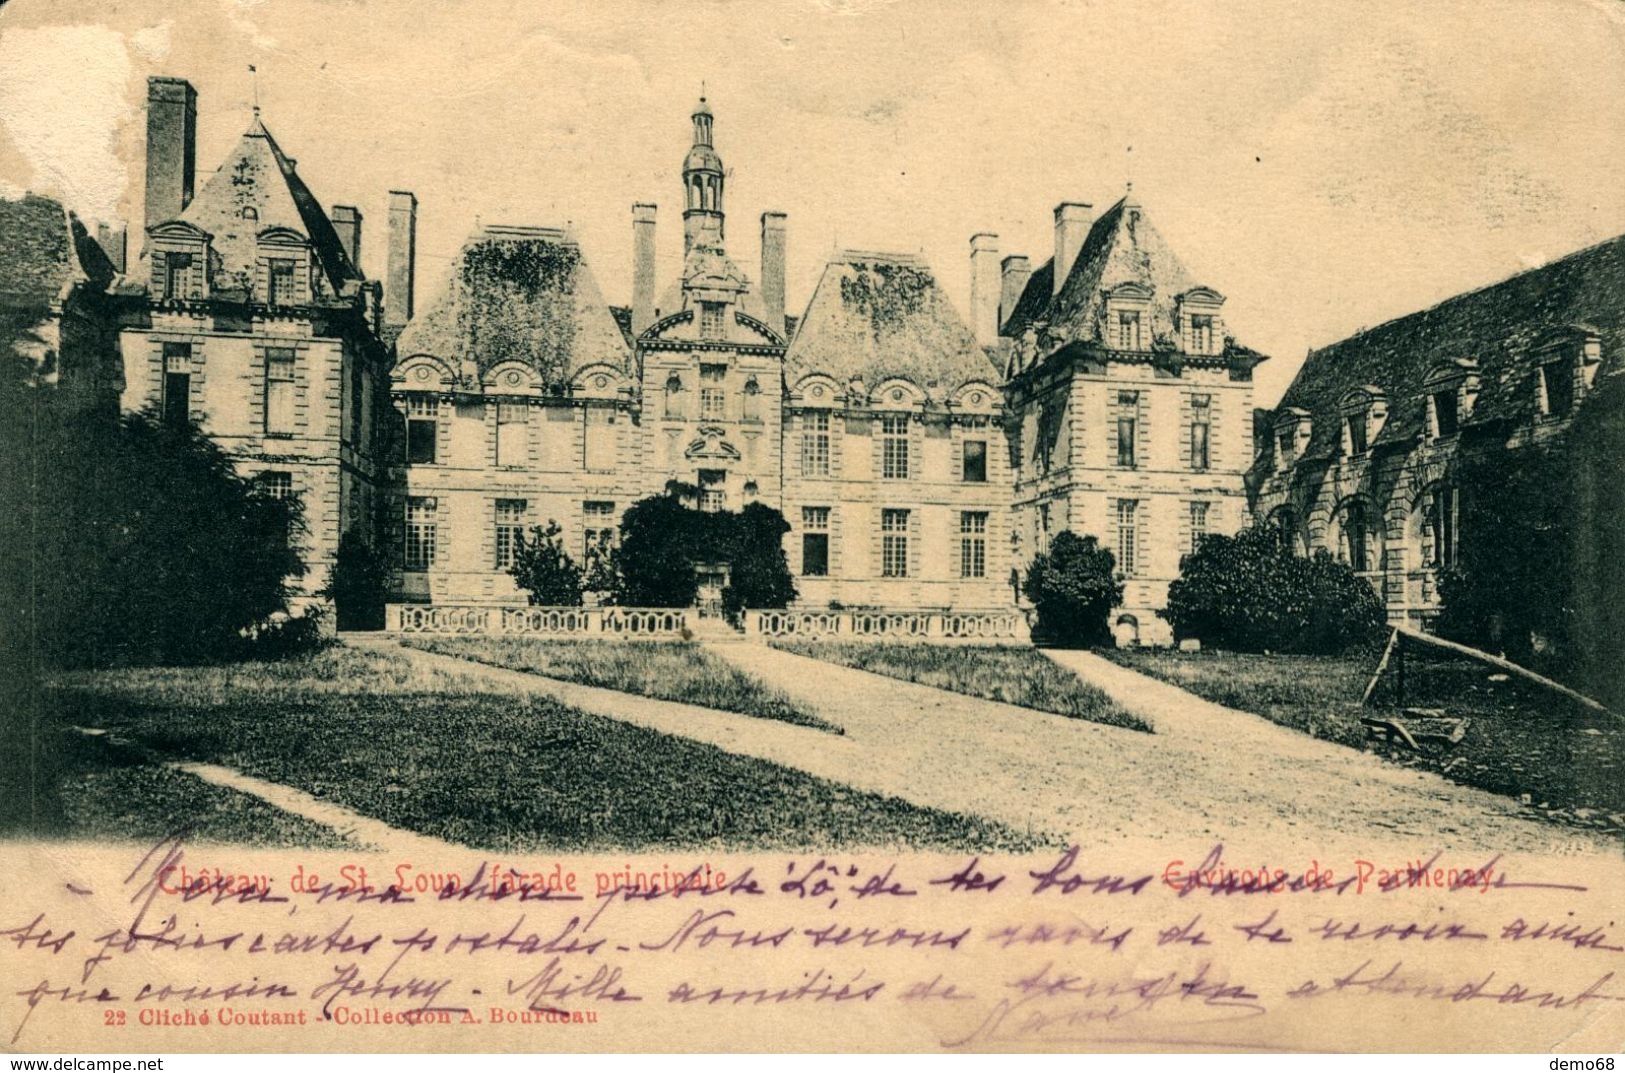 Château de St Loup, façade principale
Environs de Parthenay
- Merci, ma chère petite "Lô", de tes bons baisers et de
tes jolies cartes postales - Nous serons ravis de te revoir ainsi
que cousin Henry - Mille amitiés de tous en attendant -
22 Cliché Coutant - Collection A. Bourdeau
https://www.delcampe.net
demo68